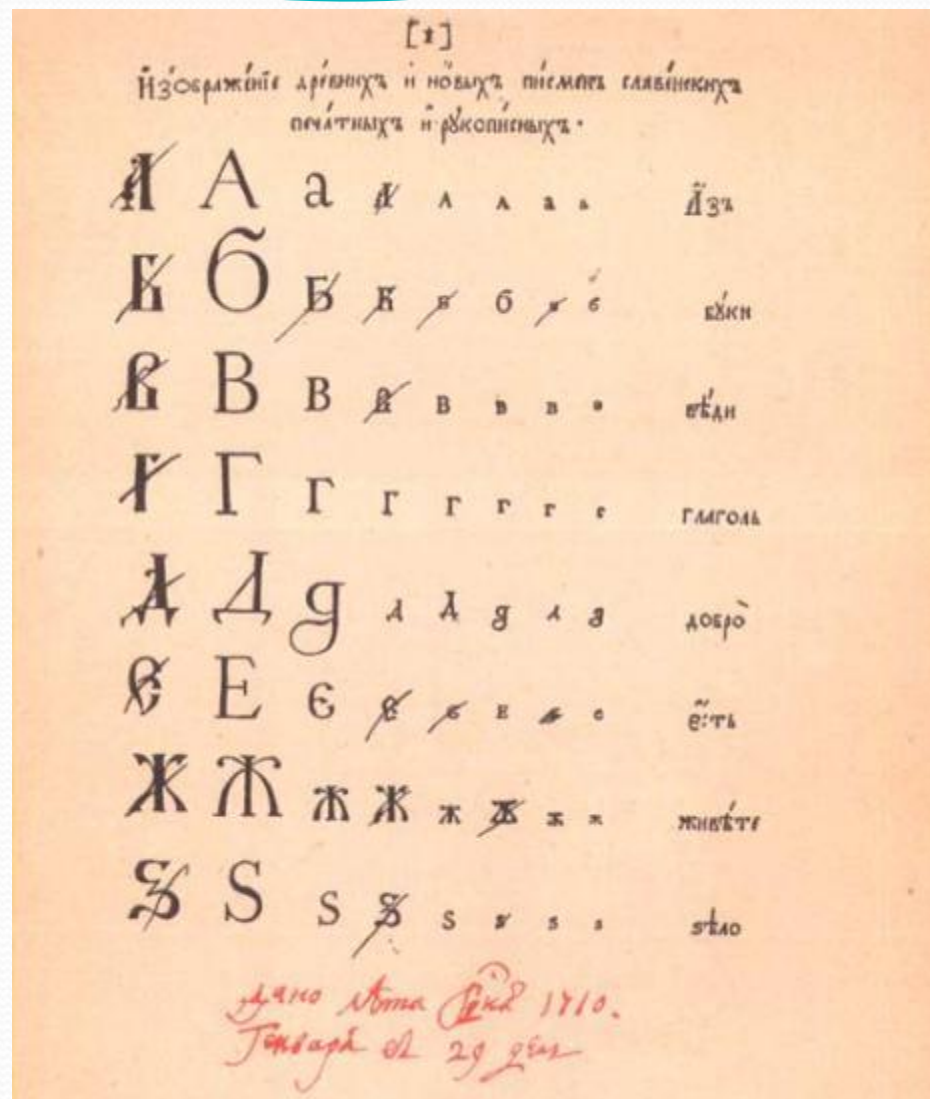 [1]
И҆зображе́нїе дре́внихъ и҆ но́выхъ пи́сменъ славе́нскихъ
печа́тныхъ и҆ рꙋкопи́сныхъ.
А А а А а а а а А҆́зъ
Б Б Б Б б б б б бꙋ́ки
В В в В в в в в вѣ́ди
Г Г г г г г г г глаголь
Д Д д д д д д д добро̀
Є Е є є є е е е є҆́сть
Ж Ж ж Ж ж ж ж ж живѣ́те
Ѕ Ѕ ѕ Ѕ ѕ ѕ ѕ ѕ ѕѣло
Дано лѣта Гд҇нѧ 1710.
Генварѧ въ 29 день